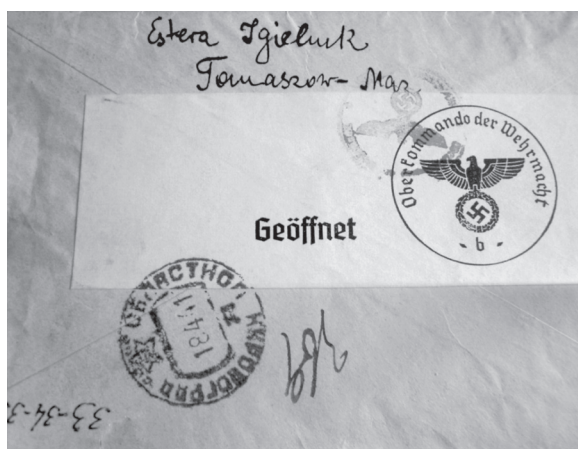 Estera Jgielnik
Tomaszow-Maz.
Oberkommando der Wehrmacht
- b -
Geöffnet
ОБЛАСТНОЙ
КИРОВОГРАД
18441
33-34-3